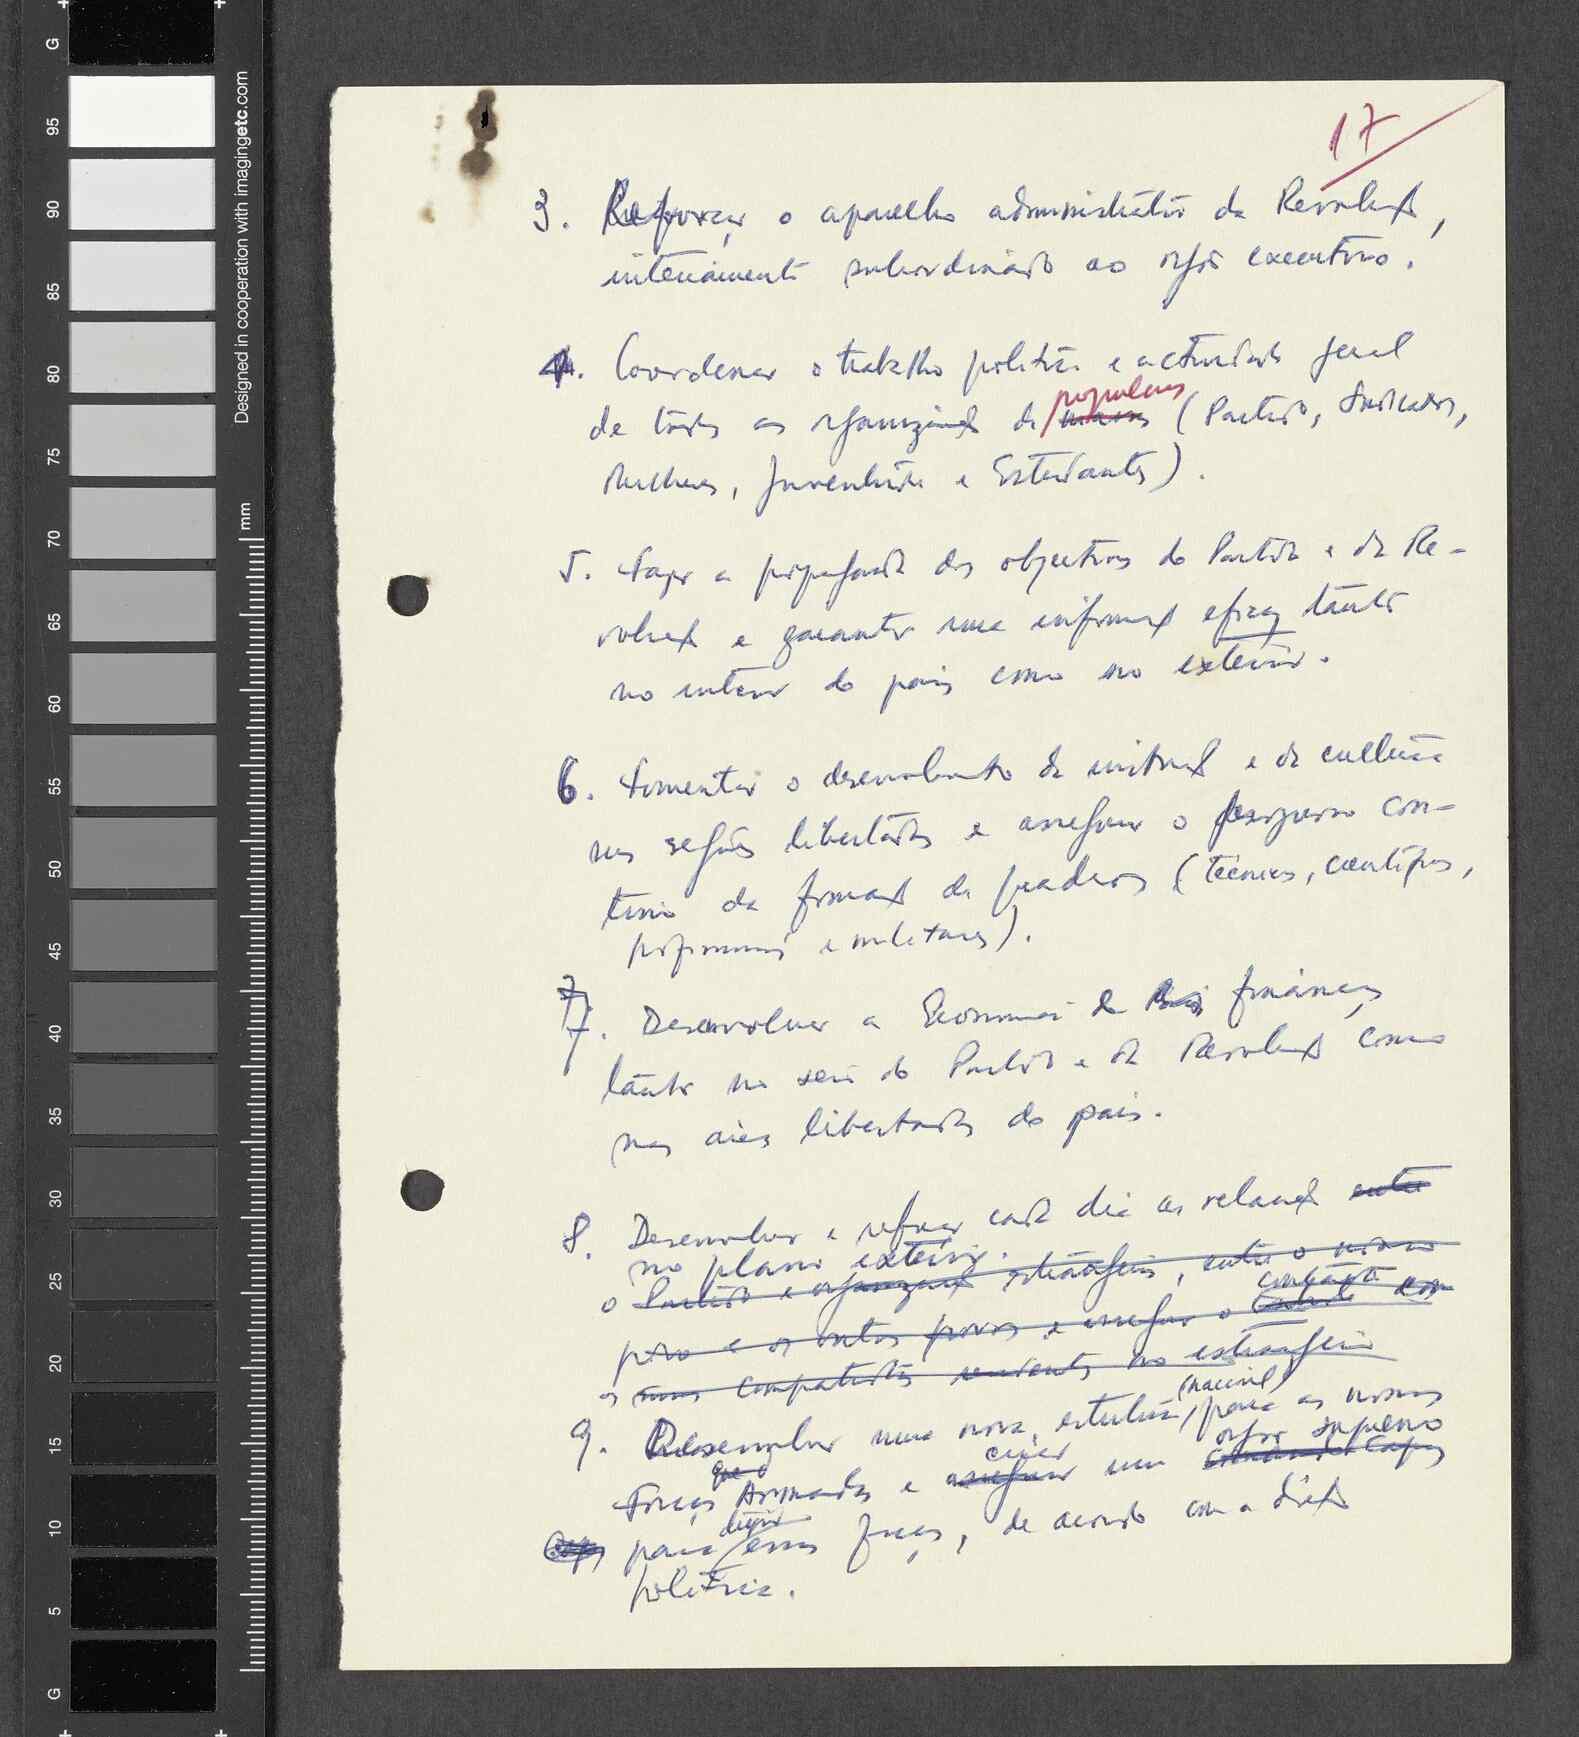 17
3. Reforçar o aparelho administrativo da Revolução,
inteiramente subordinado ao órgão executivo.
4. Coordenar o trabalho político e actividade geral
de todas as organizações de massas populares (Partido, Sindicatos,
Mulheres, Juventude e Estudantes).
5. Fazer a propaganda dos objectivos do Partido e da Re-
volução e garantir uma informação eficaz tanto
no interior do país como no exterior.
6. Fomentar o desenvolvimento da instrução e da cultura
nas regiões libertadas e assegurar o progresso con-
tínuo da formação de quadros (técnicos, científicos,
profissionais e militares).
7. Desenvolver a Economia e as finanças
tanto no seio do Partido e da Revolução como
nas áreas libertadas do país.
8. Desenvolver e reforçar cada dia as relações entre
no plano exterior.
o Partido e organizações estrangeiras, entre o nosso
contacto
povo e os outros povos e assegurar o com
os nossos compatriotas residentes no estrangeiro
(nacional)
9. Desenvolver uma nova estrutura para as nossas
criar órgão supremo
Forças Armadas e assegurar um
dirigir
para essas forças, de acordo com a direcção
política.
G
95
90
85
80
75
70
65
60
55
50
45
40
35
30
25
20
15
10
5
G
Designed in cooperation with imagingetc.com
mm